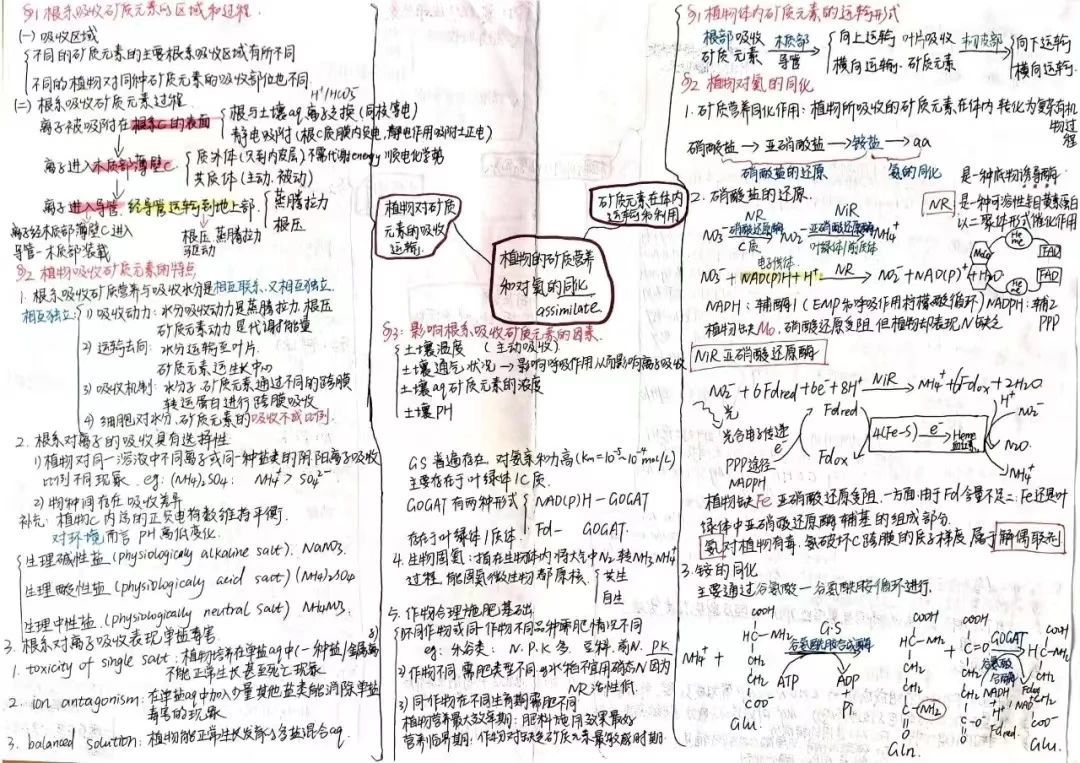 §1 根系吸收矿质元素的区域和过程
(一) 吸收区域
不同的矿质元素的主要根系吸收区域有所不同
不同的植物对同种矿质元素的吸收部位也不同.
(二) 根系吸收矿质元素过程
H⁺/HCO₃⁻
离子被吸附在根系C的表面
根与土壤aq离子交换(同荷等电)
静电吸附(根C质膜内负电,静电作用吸附土正电)
离子进入木质部薄壁C
质外体(只到内皮层)不需代谢energy 顺电化学势
共质体(主动.被动)
离子进入导管.经导管运转到地上部.
蒸腾拉力
根压
离子经木质部薄壁C进入
导管-木质部装载
根压 蒸腾拉力
驱动
§2 植物吸收矿质元素的特点
1. 根系吸收矿质营养与吸收水分是相互联系.又相互独立.
相互独立:
1) 吸收动力: 水分吸收动力是蒸腾拉力.根压
矿质元素动力是代谢能量
2) 运转去向: 水分运转至叶片.
矿质元素运生长中心
3) 吸收机制: 水分子.矿质元素通过不同的跨膜
转运蛋白进行跨膜吸收
4) 细胞对水分.矿质元素的吸收不成比例.
2. 根系对离子的吸收具有选择性
1) 植物对同一溶液中不同离子或同一种盐类的阴阳离子吸收
比例不同现象. eg: (NH₄)₂SO₄: NH₄⁺ > SO₄²⁻
2) 物种间存在吸收差异
补充: 植物C内总的正负电荷数维持平衡.
对环境而言 PH高低变化.
生理碱性盐 (physiologicaly alkaline salt). NaNO₃.
生理酸性盐 (physiologicaly acid salt) (NH₄)₂SO₄
生理中性盐 (physiologically neutral salt) NH₄NO₃.
3. 根系对离子吸收表现单盐毒害
1. toxicity of single salt: 植物培养在单盐aq中(一种盐/金属离子)
不能正常生长甚至死亡现象
2. ion antagonism: 在单盐aq中加入少量其他盐类能消除单盐
毒害的现象
3. balanced solution: 植物能正常生长发育的含盐混合aq.
植物对矿质
元素的吸收
运输.
矿质元素在体内
运转和利用
植物的矿质营养
和对氮的同化
assimilate.
§3: 影响根系吸收矿质元素的因素.
土壤温度 (主动吸收)
土壤通气状况→影响呼吸作用从而影响离子吸收
土壤aq矿质元素的浓度
土壤PH
GS普遍存在.对氨亲和力高(Km=10⁻⁵~10⁻⁴mol/L)
主要存在于叶绿体/C质.
GOGAT有两种形式
NAD(P)H-GOGAT
Fd- GOGAT.
存在于叶绿体/质体
4. 生物固氮: 指在生物体内将大气中N₂转NH₃.NH₄⁺
过程.能固氮微生物都原核.
共生
自生
5. 作物合理施肥基础.
1) 不同作物或同一作物不同品种需肥情况不同
N.P.K多
P.K
2) 作物不同.需肥类型不同 eg水稻不宜用硝态N因为
NR活性低.
3) 同一作物在不同生育期需肥不同
植物营养最大效率期: 肥料施用效果最好
营养临界期: 作物对缺乏矿质元素最敏感时期.
§1 植物体内矿质元素的运转形式
根部吸收
矿质元素
木质部
导管
向上运转
横向运转.
叶片吸收
矿质元素
韧皮部
向下运转
横向运转.
§2 植物对氮的同化
1. 矿质营养同化作用: 植物所吸收的矿质元素在体内转化为复杂有机
物过程
硝酸盐→亚硝酸盐→铵盐→aa
硝酸盐的还原
氨的同化
是一种底物诱导酶
2. 硝酸盐的还原.
NR
是一种可溶性钼黄素蛋白
以二聚体形式催化作用
NR
NiR
NO₃⁻ 硝酸还原酶 NO₂⁻ 亚硝酸还原酶 NH₄⁺
C质
叶绿体/前质体
电子供体
NO₃⁻+NAD(P)H+H⁺ NR NO₂⁻+NAD(P)⁺+H₂O
Heme
FAD
FAD
NADH: 辅酶1 (EMP和呼吸作用柠檬酸循环) NADPH: 辅2
PPP
植物缺Mo.硝酸还原受阻.但植物却表现N缺乏
NiR 亚硝酸还原酶
NO₂⁻+6Fdred+6e⁻+8H⁺ NiR NH₄⁺+6Fdox+2H₂O
光
光合电子传递
PPP途径
NADPH
Fdred
Fdox
4(Fe-S) e⁻ Heme
血红素
H⁺
NO₂⁻
H₂O
NH₄⁺
植物缺Fe 亚硝酸还原受阻.一方面由于Fd含量不足;二:Fe还是叶
绿体中亚硝酸还原酶辅基的组成部分.
氨对植物有毒.氨破坏C跨膜的质子梯度属于解偶联剂
3. 铵的同化
主要通过谷氨酸-谷氨酰胺循环进行.
NH₄⁺
+
COOH
HC-NH₂
CH₂
CH₂
COO⁻
Glu.
GS
谷氨酰胺合成酶
ATP
ADP
+
Pi
COOH
HC-NH₂
CH₂
CH₂
C-NH₂
O
Gln.
+
COOH
C=O
CH₂
CH₂
C-O⁻
O
GOGAT
谷氨酸
合酶
NADH
+
H⁺
Fdred
Fdox
NAD⁺
COOH
HC-NH₂
CH₂
CH₂
COO⁻
Glu.